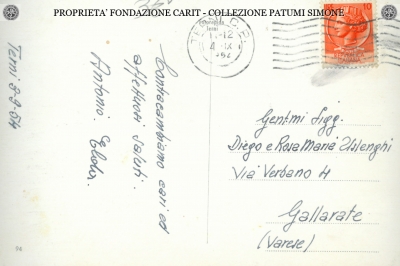 PROPRIETA' FONDAZIONE CARIT - COLLEZIONE PATUMI SIMONE
Terni
11-12
10
Terni 3-9-64
Contraccambiamo cari ed
affettuosi saluti.
Antonio,
Gent.mi Sigg.
Diego e Rosa Maria
Via Verbano 4
Gallarate
(Varese)
94